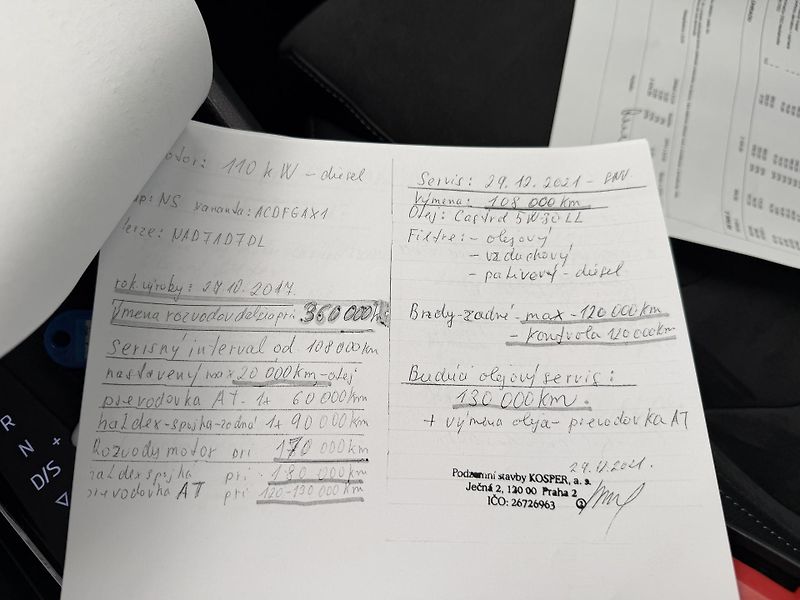 motor: 110 kW - diesel
typ: NS varianta: ACDFGAX1
verze: NAD7AD7DL
rok výroby: 27.10.2017
Výmena rozvodov ďalšia pri 360 000 km
Serisný interval od 108 000 km
nastavený max 20 000 km - olej
prevodovka AT - 1x 60 000 km
haldex - spojka - zadná 1x 90 000 km
Rozvody motor pri 170 000 km
haldex spojka pri 180 000 km
prevodovka AT pri 120-130 000 km
Servis: 29.12.2021 -
Výmena: 108 000 km
Olej: Castrol 5W30 LL
Filtre: - olejový
- vzduchový
- palivový - diesel
Brzdy - zadné - max - 120 000 km
- kontrola 120 000 km
Budúci olejový servis:
130 000 km.
+ výmena oleja - prevodovka AT
29.12.2021.
Podzemní stavby KOSPER, a. s.
Ječná 2, 120 00 Praha 2
IČO: 26726963
R
N
D/S
+